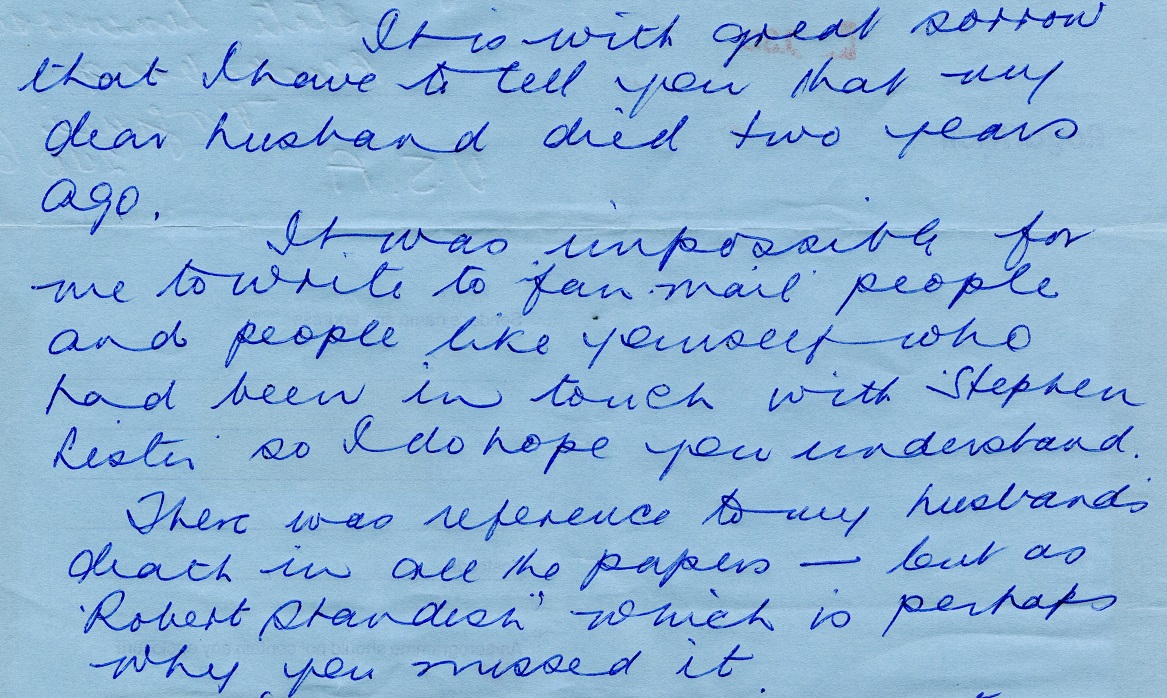 It is with great sorrow
that I have to tell you that my
dear husband died two years
ago.
It was impossible for
me to write to fan-mail people
and people like yourself who
had been in touch with Stephen
Lister so I do hope you understand.
There was reference to my husband's
death in all the papers — but as
'Robert Standish' which is perhaps
why you missed it.